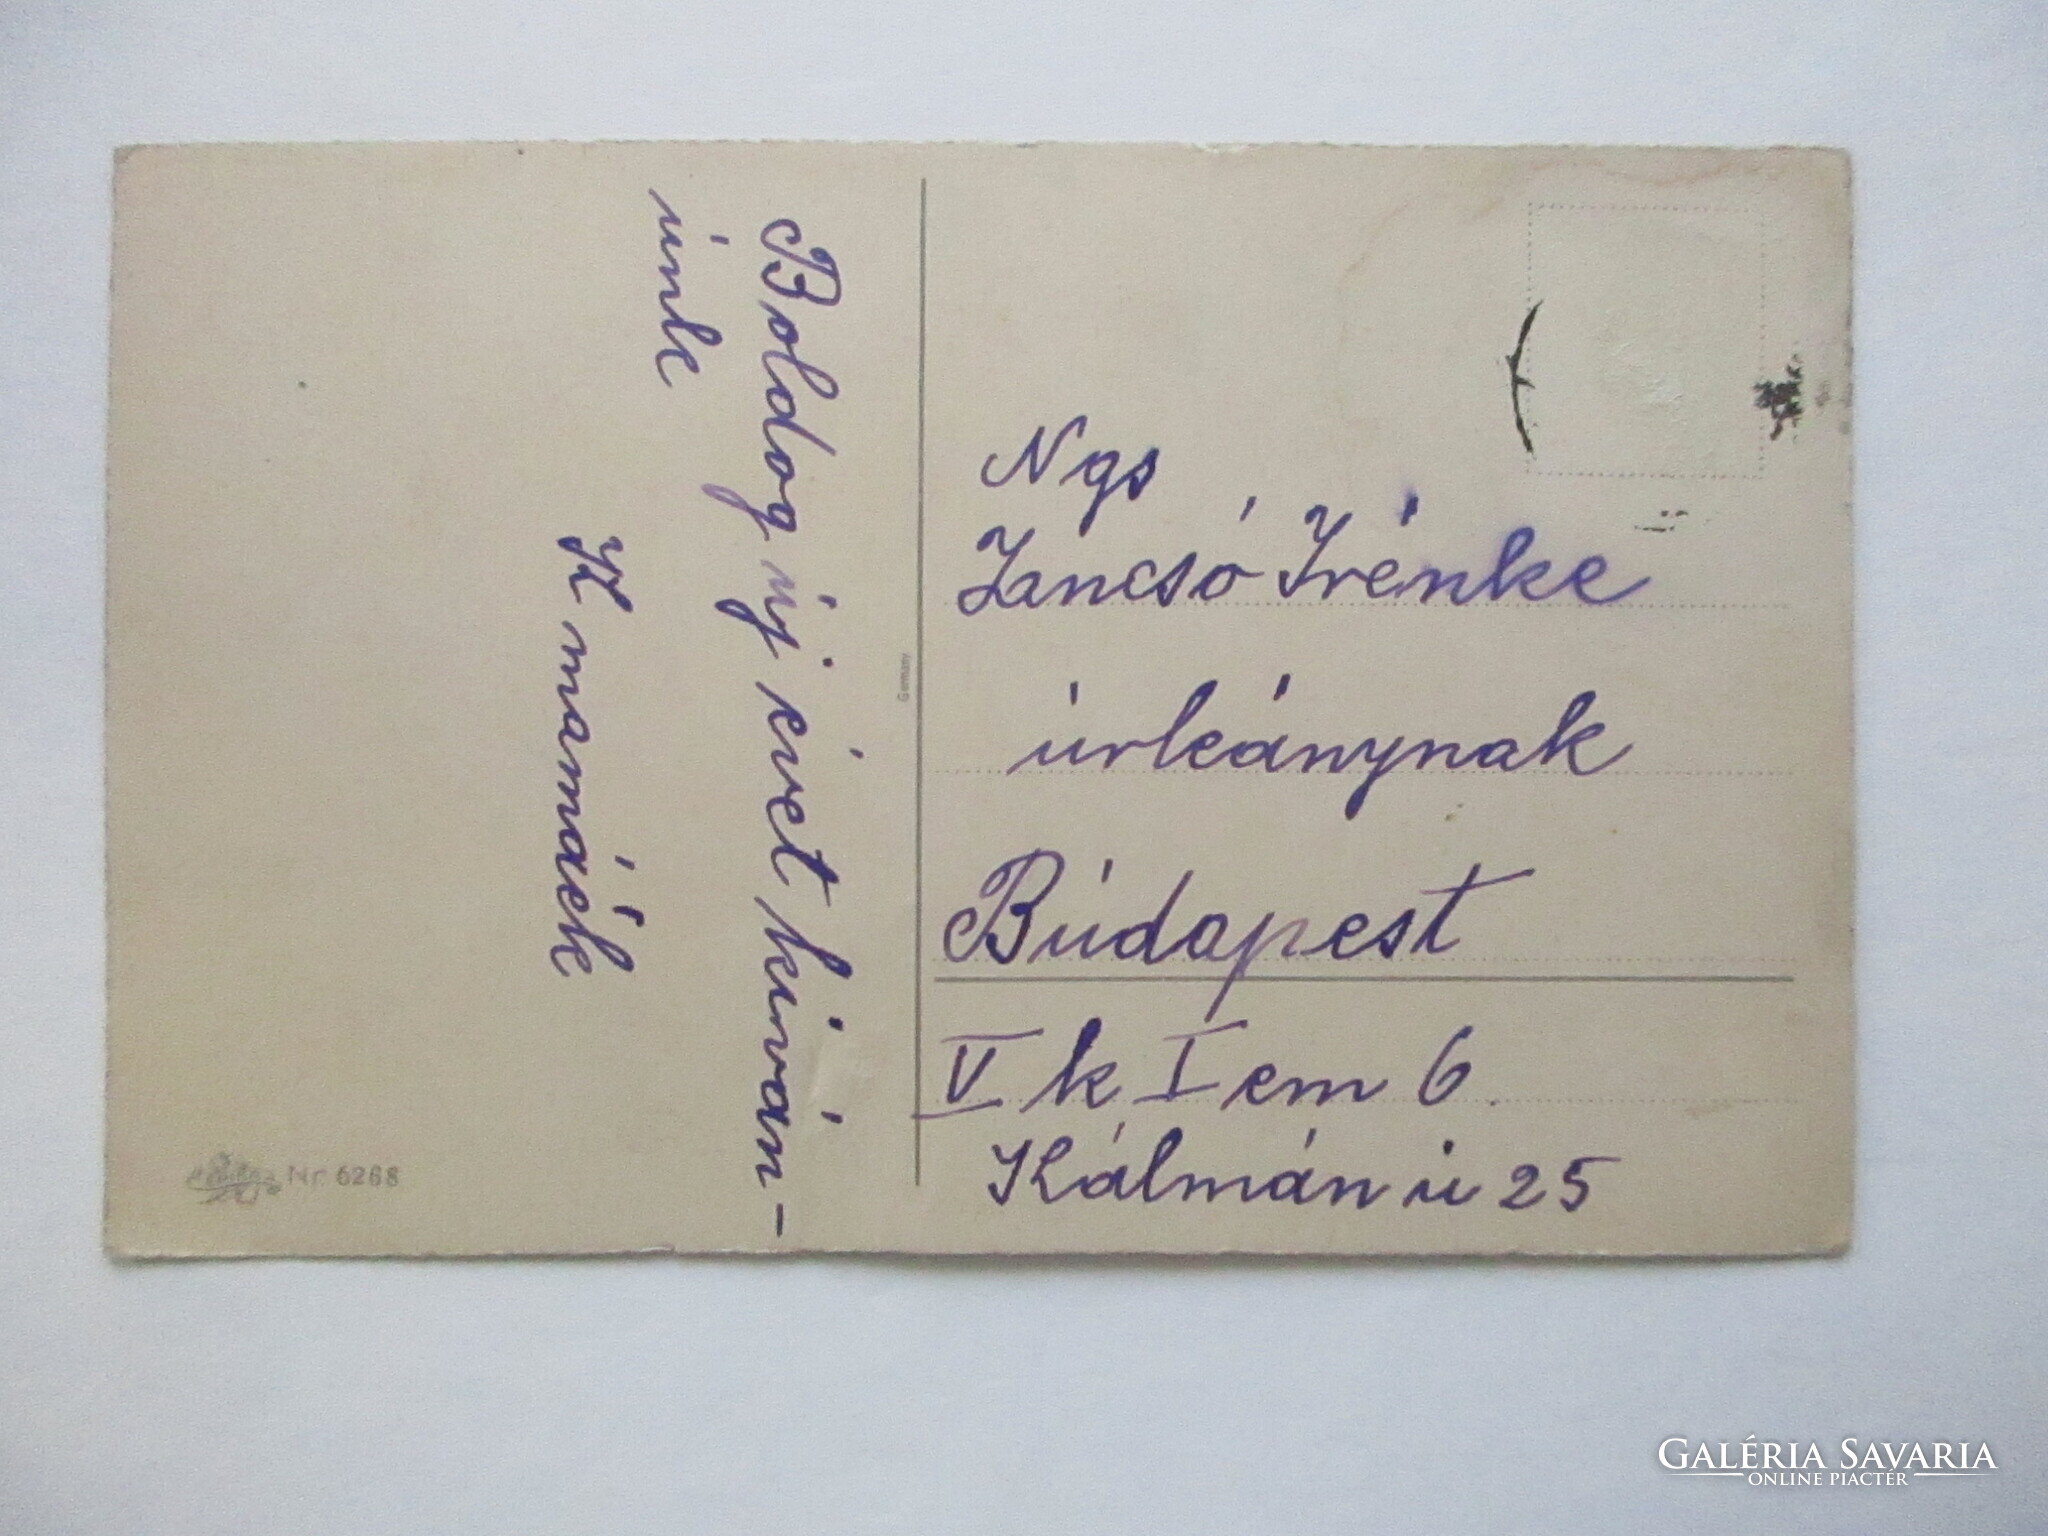 Boldog új évet kíván-
únk
K mamáék
Germany
Nr. 6268
Ngs
Jancsó Irénke
úrleánynak
Búdapest
V k I em 6.
Kálmán u 25
GALÉRIA SAVARIA
ONLINE PIACTÉR